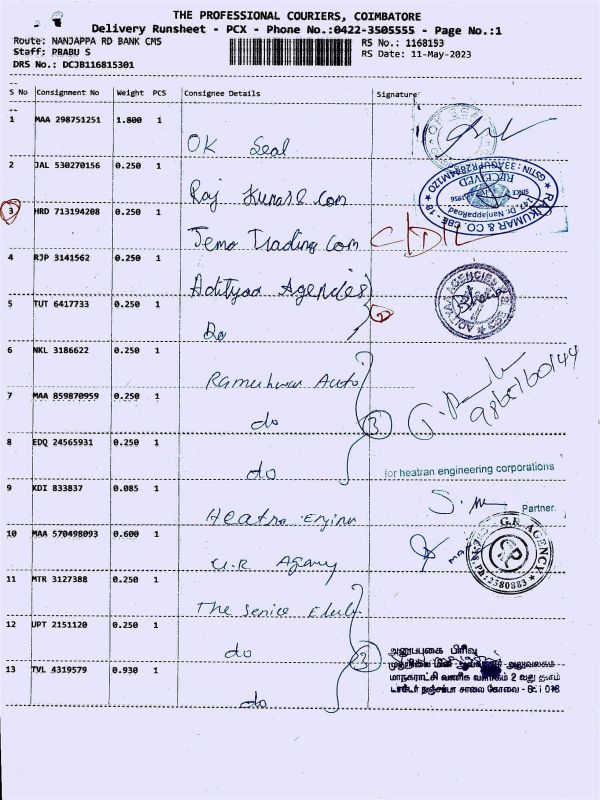 THE PROFESSIONAL COURIERS, COIMBATORE
Delivery Runsheet - PCX - Phone No.:0422-3505555 - Page No.:1
Route: NANJAPPA RD BANK CMS
RS No.: 1168153
Staff: PRABU S
RS Date: 11-May-2023
DRS No.: DCJB116815301
S No Consignment No Weight PCS Consignee Details Signature
1 MAA 298751251 1.800 1 OK Seal
2 JAL 530270156 0.250 1 Raj Kumar & Com
3 HRD 713194208 0.250 1 Jemo Trading Com
4 RJP 3141562 0.250 1 Aditya Agencies
5 TUT 6417733 0.250 1 Do 2
6 NKL 3186622 0.250 1 Rameshwar Auto
7 MAA 859870959 0.250 1 do 3
8 EDQ 24565931 0.250 1 do
for heatran engineering corporations
9 KDI 833837 0.085 1 Heatra Engine
Partner.
10 MAA 570498093 0.600 1 G.R Agency
11 MTR 3127388 0.250 1 The Senice
12 UPT 2151120 0.250 1 do 3
13 TVL 4319579 0.930 1 do
RAJKUMAR & CO. CBE - 18
147, Dr. NanjappaRoad,
RECEIVED
SINCE 1956
ADITYAA AGENCIES
G.R. AGENCY
Ph: 2380883
அனுப்புகை பிரிவு
அலுவலகம்
மாநகராட்சி வணிக வளாகம் 2 வது தளம்
டாக்டர் நஞ்சப்பா சாலை கோவை